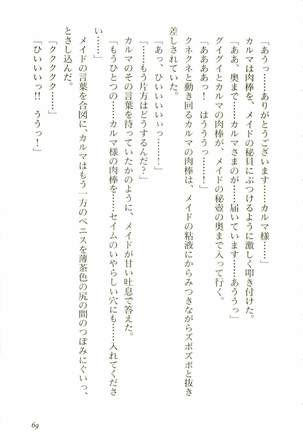 「あうっ……ありがとうございます……カルマ様……」
カルマは肉棒を、メイドの秘貝にぶつけるように激しく叩き付けた。
「ああ、奥まで……カルマさまのが……届いています……あううっ」
グイグイとカルマの肉棒が、メイドの秘壺の奥まで入って行く。
「ああああっ！　はううう……っ！」
クネクネと動き回るカルマの肉棒は、メイドの粘液にからみつきながらズポズポと抜き
差しされていた。
「あっ、ひいいいいぃっ……！」
「……もう片方はどうするんだ？」
カルマのその言葉を待っていたかのように、メイドが甘い吐息で答えた。
「もうひとつの……カルマ様の肉棒を……セイムのいやらしい穴にも……入れてくださ
い……」
メイドの言葉を合図に、カルマはもう一方のペニスを薄茶色の尻の間のつぼみにぐいっ、
ときし込んだ。
「ククククク……」
「ひいいいいっ!!　ううっ！」
69